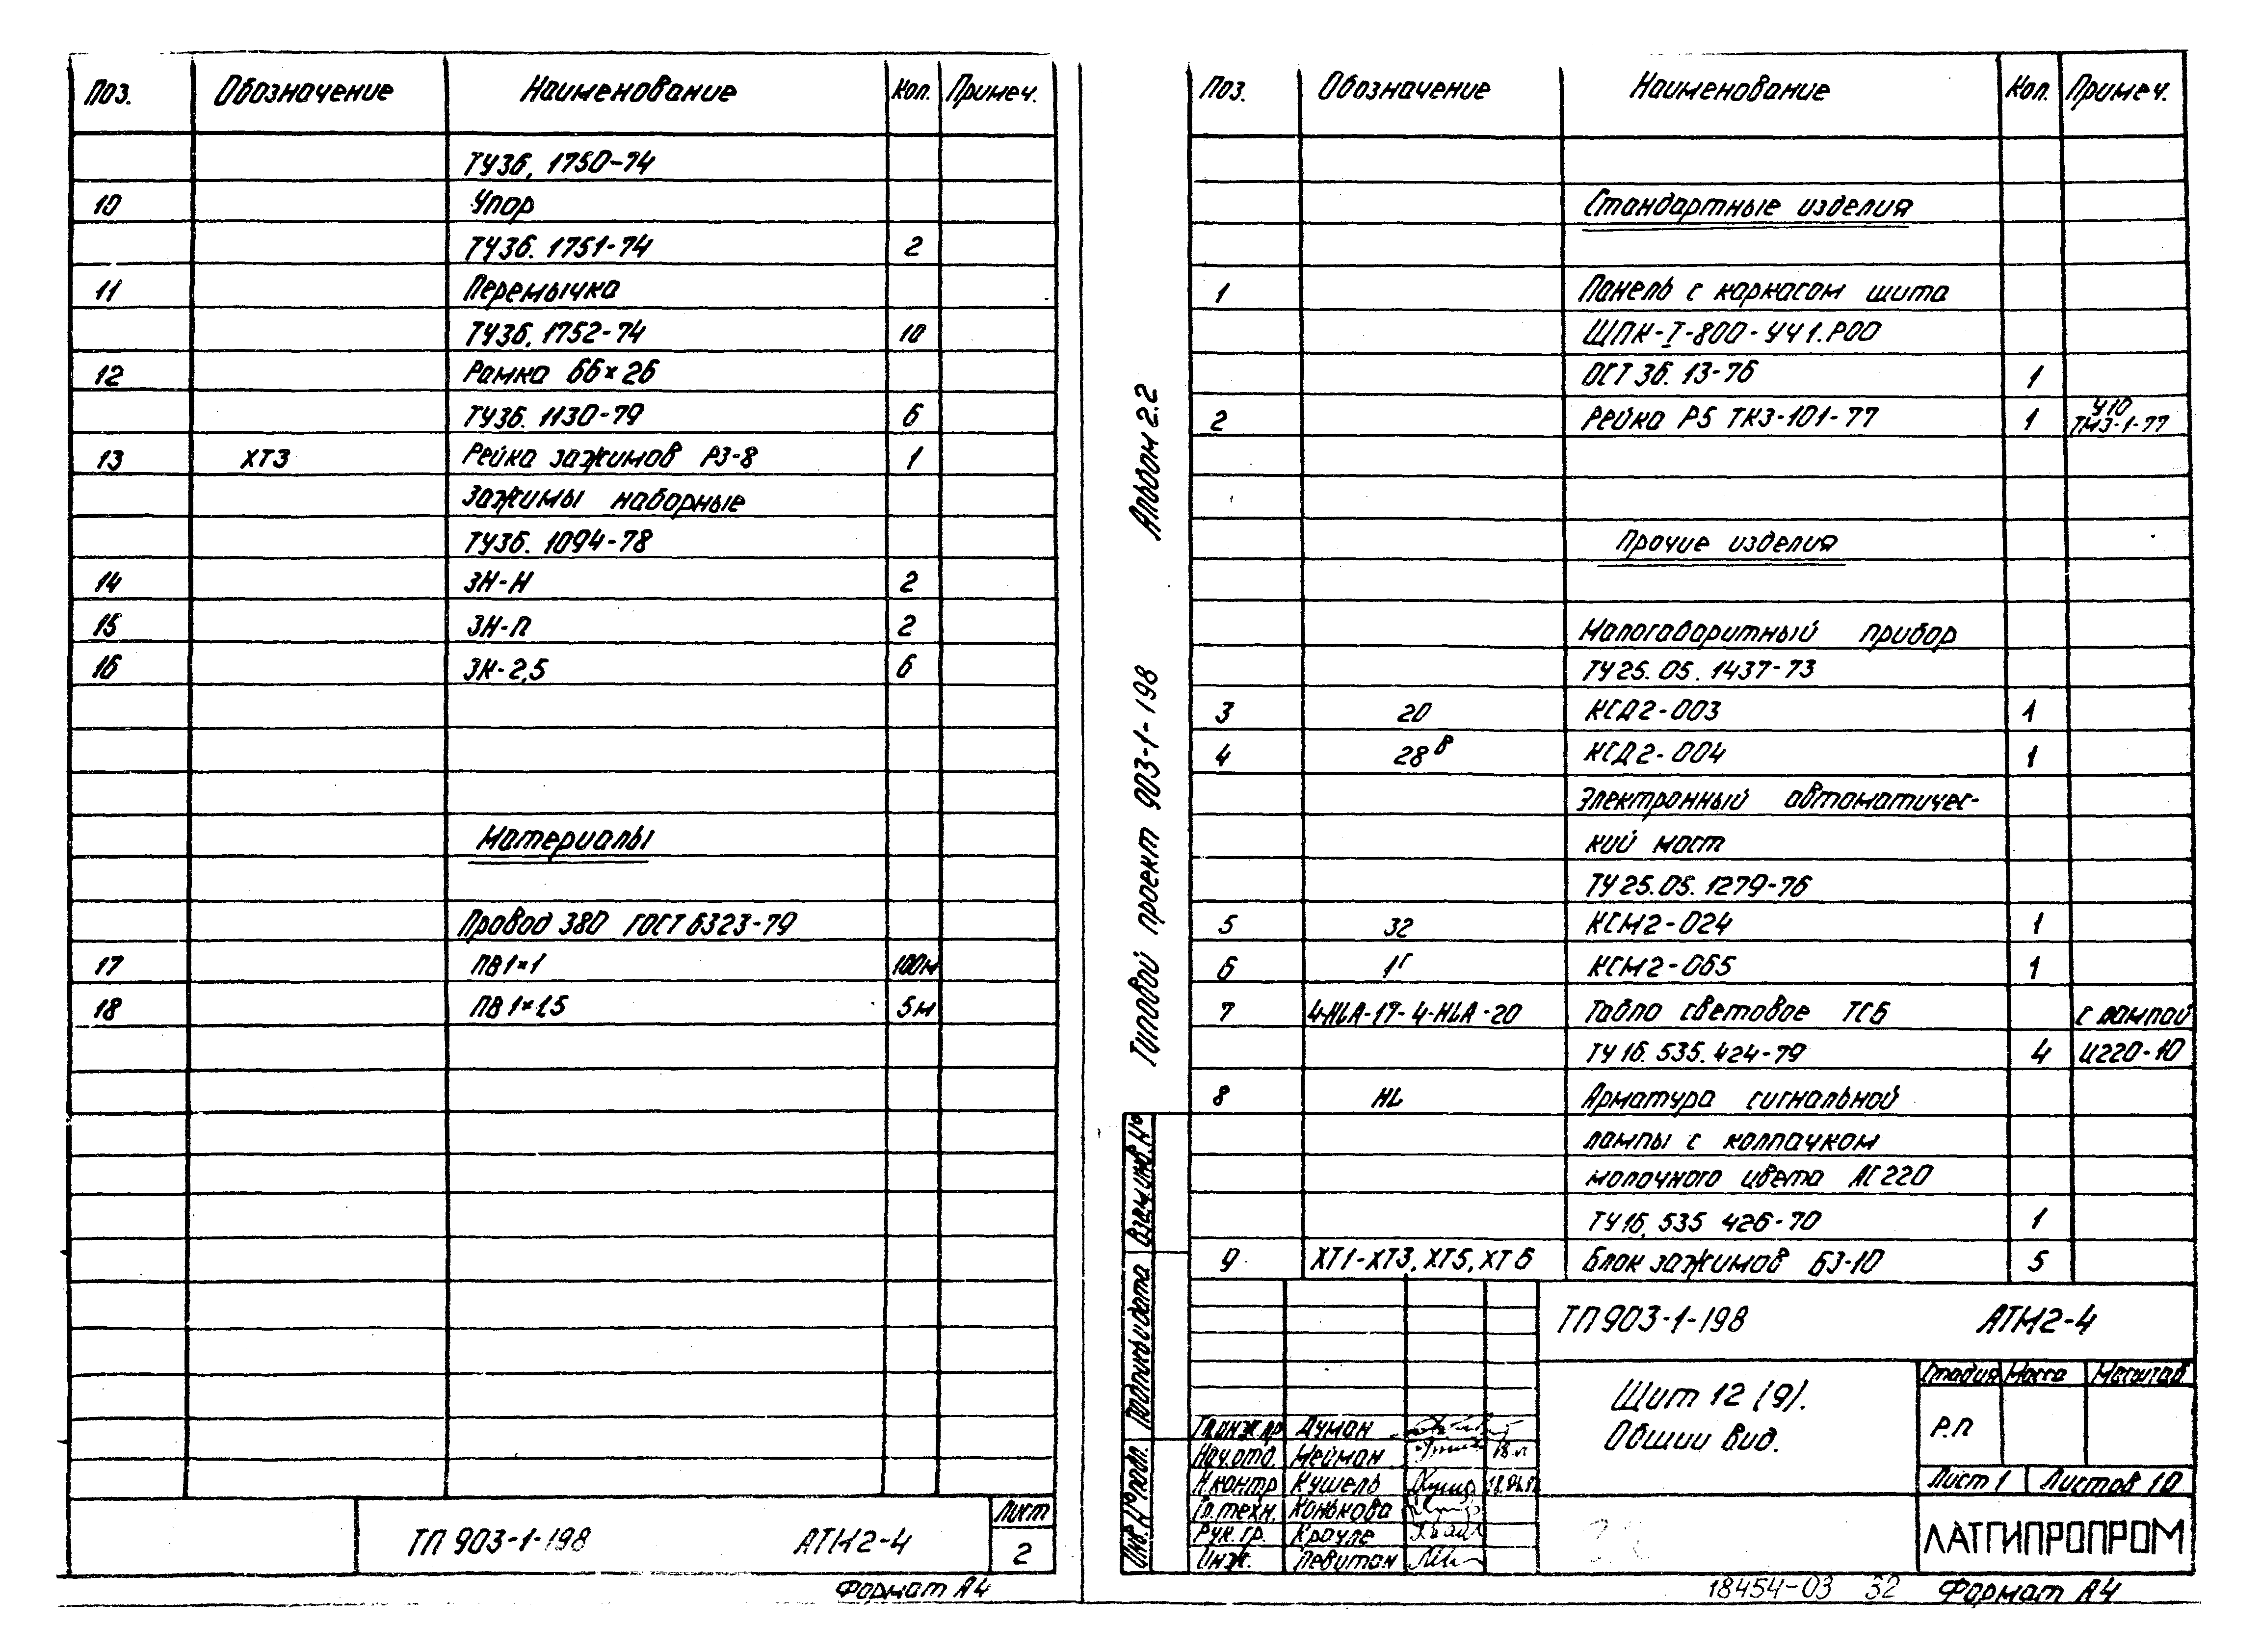 Поз. Обозначение Наименование Кол. Примеч.
ТУ36. 1750-74
10 Упор
ТУ36. 1751-74 2
11 Перемычка
ТУ36. 1752-74 10
12 Рамка 66×26
ТУ36. 1130-79 6
13 ХТ3 Рейка зажимов РЗ-8 1
Зажимы наборные
ТУ36. 1094-78
14 ЗН-Н 2
15 ЗН-П 2
16 ЗК-2,5 6
Материалы
Провод 380 ГОСТ 6323-79
17 ПВ 1×1 100м
18 ПВ 1×1,5 5м
ТП 903-1-198 АТМ2-4
Лист
2
Формат А4
Альбом 2.2
Типовой проект 903-1-198
Взам.инв.№
Подпись и дата
Инв.№ подл.
Поз. Обозначение Наименование Кол. Примеч.
Стандартные изделия
1 Панель с каркасом щита
ЩПК-I-800-УЧ1.Р00
ОСТ 36. 13-76 1
2 Рейка Р5 ТК3-101-77 1 У10 ТМ3-1-77
Прочие изделия
Малогабаритный прибор
ТУ 25. 05. 1437-73
3 20 КСД2-003 1
4 28в КСД2-004 1
Электронный автоматичес-
кий мост
ТУ 25.05. 1279-76
5 32 КСМ2-024 1
6 1г КСМ2-065 1
7 4-HLA-17- 4-HLA-20 Табло световое ТСБ с лампой
ТУ 16. 535. 424-79 4 Ц220-10
8 HL Арматура сигнальной
лампы с колпачком
молочного цвета АС220
ТУ 16. 535 426-70 1
9 ХТ1-ХТ3, ХТ5, ХТ6 Блок зажимов БЗ-10 5
ТП 903-1-198 АТМ2-4
Щит 12 (9).
Общий вид.
Стадия Масса Масштаб
Р.П
Лист 1 Листов 10
ЛАТГИПРОПРОМ
Гл.инж.пр Думан
Нач.отд. Мейман
Н.контр Кушель
Гл.техн. Конькова
Рук. гр. Крауле
Инж. Левитан
18454-03 32 Формат А4